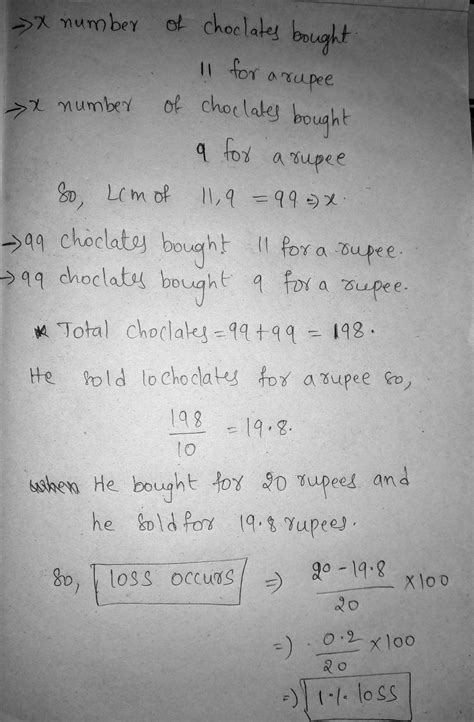 →x number of choclates bought
11 for a rupee
→x number of choclates bought
9 for a rupee
So, Lcm of 11,9 = 99 ⇒ x.
→99 choclates bought 11 for a rupee.
→99 choclates bought 9 for a rupee.
* Total choclates = 99+99 = 198.
He sold 10 choclates for a rupee so,
198/10 = 19.8.
when He bought for 20 rupees and
he sold for 19.8 rupees.
So, loss occurs ⇒ 20-19.8/20 ×100
=) 0.2/20 ×100
=) 1% loss